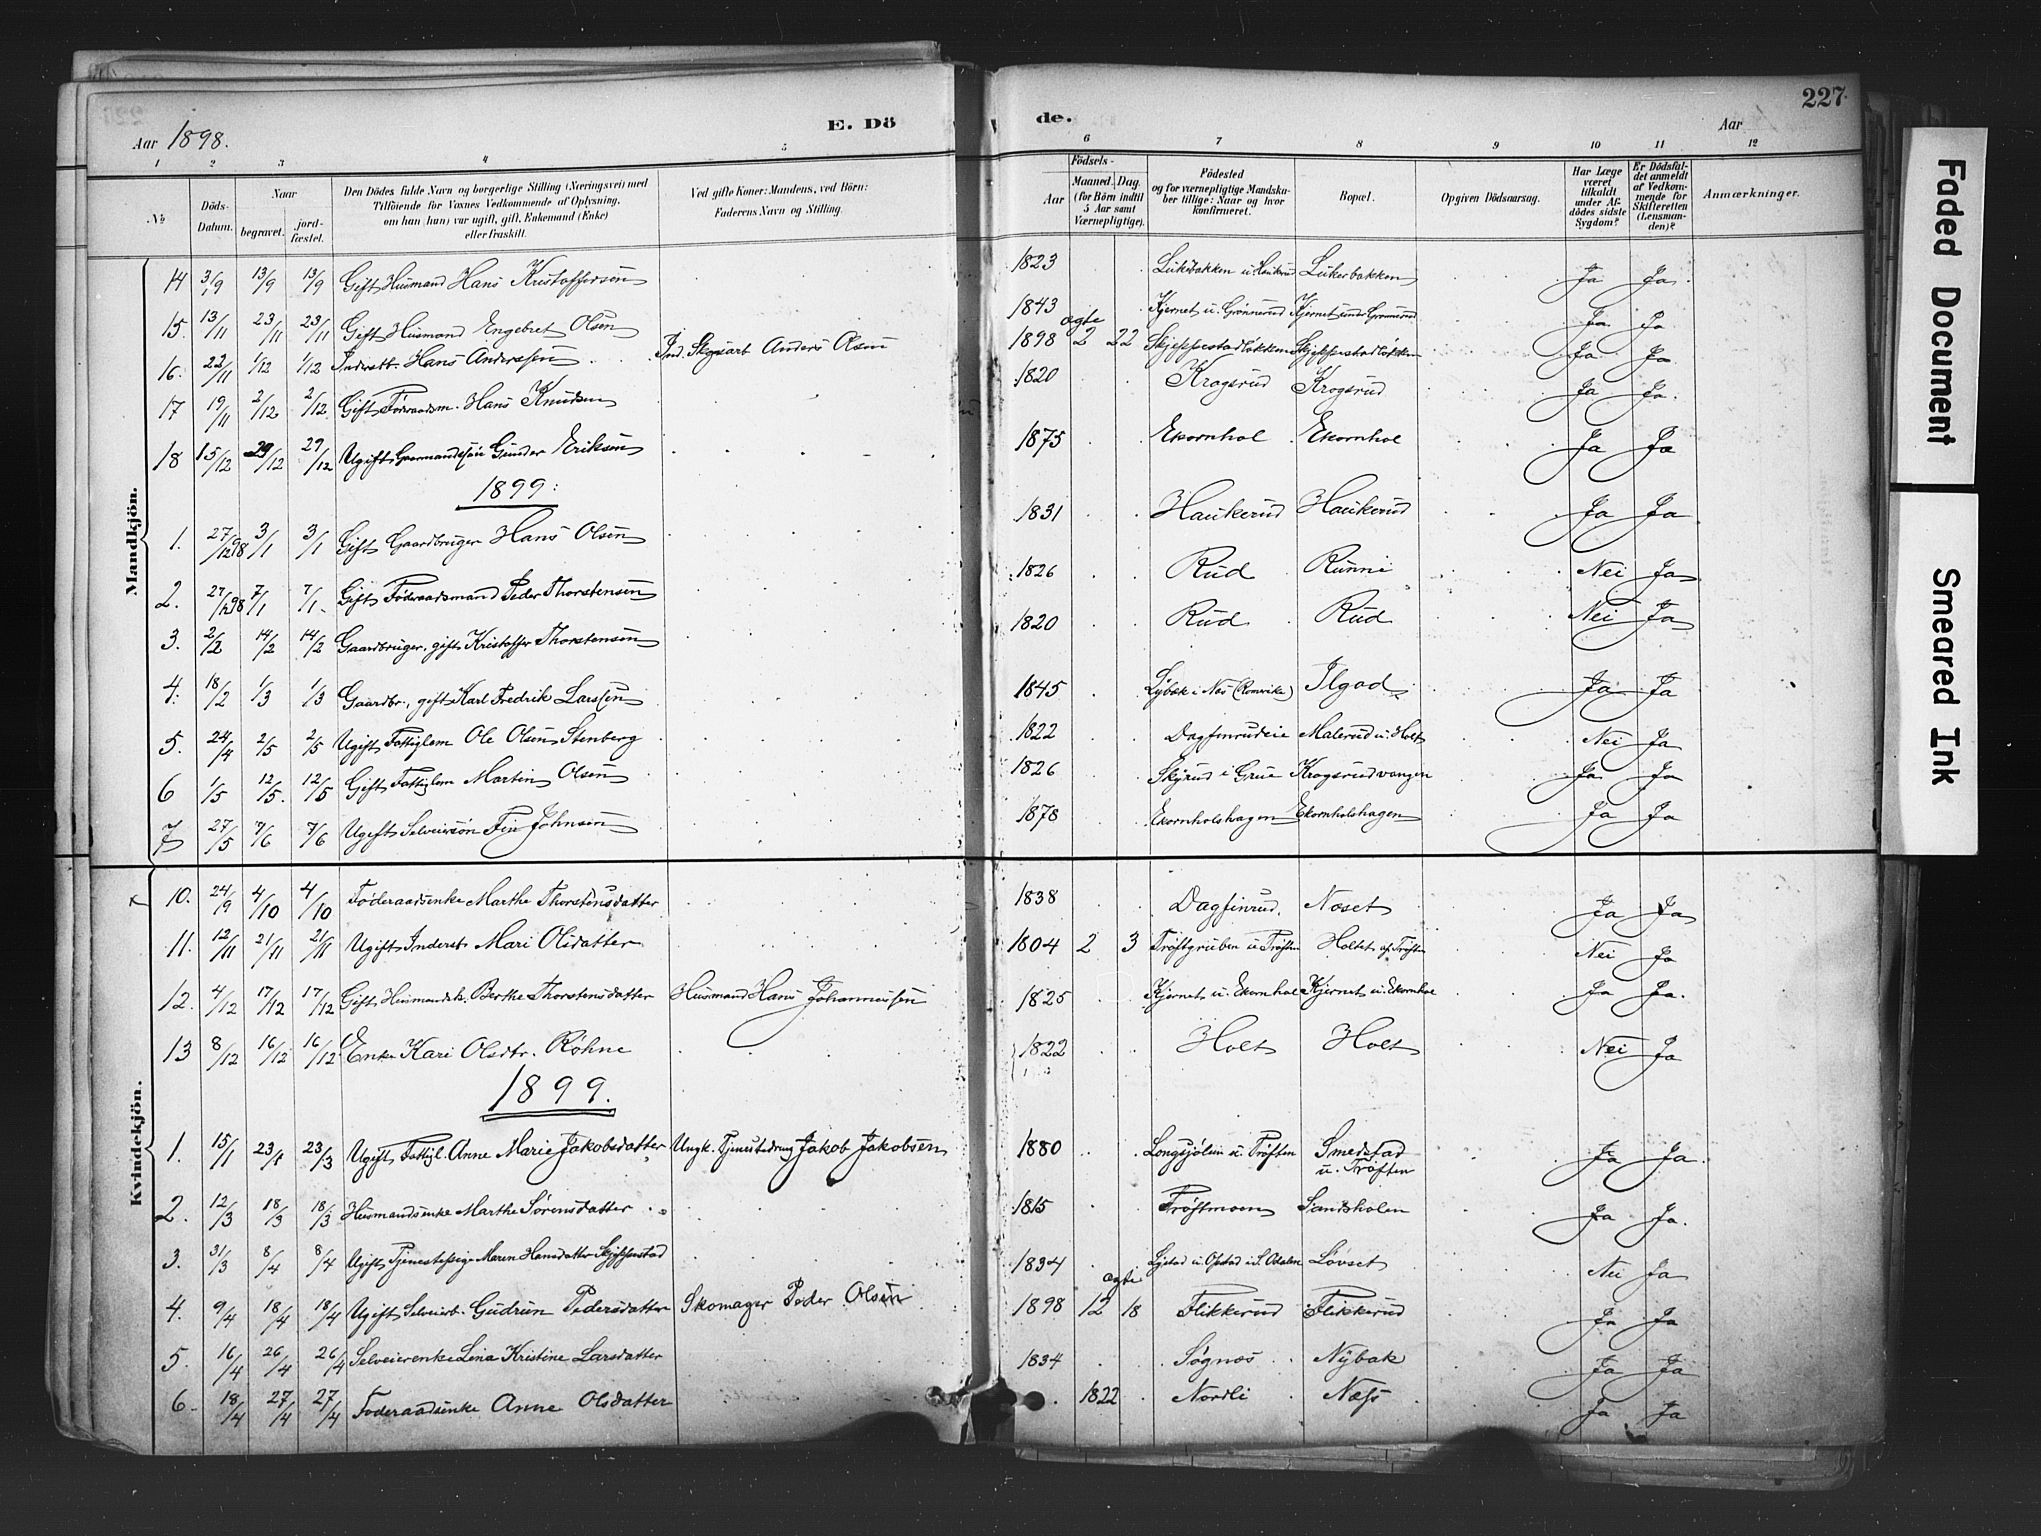 227
Aar 1898. E. Dö de. Aar
1 2 3 4 5 6 7 8 9 10 11 12
№ Döds-Datum. Naar begravet. jordfæstet. Den Dödes fulde Navn og borgerlige Stilling (Næringsvei) med Tilföiende for Voxnes Vedkommende af Oplysning, om han (hun) var ugift, gift, Enkemand (Enke) eller fraskilt. Ved gifte Koner: Mandens, ved Börn: Faderens Navn og Stilling. Födsels- Aar Maaned. Dag. (for Börn indtil 5 Aar samt Værnepligtige). Födested og for værnepligtige Mandskaber tillige: Naar og hvor konfirmeret. Bopæl. Opgiven Dödsaarsag. Har Læge været tilkaldt under Afdödes sidste Sygdom? Er Dödsfaldet anmeldt af Vedkommende for Skifteretten (Lensmanden)? Anmærkninger.
Mandkjön.
14 3/9 13/9 13/9 Gift Husmand Hans Kristoffersen 1823 Lukerbakken u. Haukerud Lukerbakken Ja Ja
15. 13/11 23/11 23/11 Gift Husmand Engebret Olsen 1843 Kjernet u. Grønnerud Kjernet under Grønnerud Ja Ja
16. 22/11 1/12 1/12 Inderstb. Hans Anderssen Ind. Skogsarb Anders Olsen 1898 ægte 2 22 Skjeppestadløkken Skjeppestadløkken Ja Ja
17 19/11 2/12 2/12 Gift Føderaadsm. Hans Knudsen 1820 Krogsrud Krogsrud Ja Ja.
18 15/12 29/12 29/12 Ugift Gaarmandssøn Gunder Eriksen 1875 Ekornhol Ekornhol Ja Ja
1899:
1. 27/12 98 3/1 3/1 Gift Gaardbruger Hans Olsen 1831 Haukerud Haukerud Ja Ja
2. 27/12 98 7/1 7/1 Gift Føderaadsmand Peder Thorstensen 1826 Rud Runni Nei Ja
3. 2/2 14/2 14/2 Gaardbruger, gift Kristoffer Thorstensen 1820 Rud Rud Nei Ja
4. 18/2 1/3 1/3 Gaardbr., gift Karl Fredrik Larssen 1845 Lybæk i Næs (Romerike) Ilgod Ja Ja
5. 24/4 2/5 2/5 Ugift Fattiglem Ole Olsen Stenberg 1822 Dagfinrudeie Malerud u. Holt Nei Ja
6 1/5 12/5. 12/5 Gift Fattiglem Martin Olsen 1826 Skyrud i Grue Krogsrudvangen Ja Ja
7 27/5 7/6 7/6 Ugift Selveiersøn Fin Johnsen 1878 Ekornholshagen Ekornholshagen Ja Ja
Kvindekjön.
10. 24/9 4/10 4/10 Føderaadsenke Marthe Thorstensdatter 1838 Dagfinrud. Næset Ja Ja
11. 12/11 21/11 21/11 Ugift Inderst Mari Olsdatter 1804 2 3 Trøftgruben u Trøften Holtet af Trøften Nei Ja
12. 4/12 17/12 17/12 Gift Husmandsk. Berthe Thorstensdatter Husmand Hans Johannessen 1825 Kjernet u. Ekornhol Kjernet u. Ekornhol Ja Ja.
13 8/12 16/12 16/12 Enke Kari Olsdtr. Røhne 1822 Holt Holt Nei Ja
1899.
1. 15/1 23/1 23/3 Ugift Fattigl. Anne Marie Jakobsdatter Ungk. Tjenestedreng Jakob Jakobsen 1880 Longsjølien u. Trøften Smedstad u. Trøften Ja Ja.
2. 12/3 18/3 18/3 Husmandsenke Marthe Sørensdatter 1815 Trøftmoen Sandsholen Ja Ja.
3. 31/3 8/4 8/4 Ugift Tjenestepige Maren Hansdatter Skjeppestad 1834 Opstad i S. Odalen Løvset Nei Ja
4. 9/4 18/4 18/4 Ugift Selveierb. Gudrun Pedersdatter Skomager Peder Olsen 1898 ægte 12 18 Flikkerud Flikkerud Ja Ja
5. 16/4 26/4 26/4 Selveierenke Lina Kristine Larsdatter 1834 Søgnæs Nybak Ja Ja
6 18/4 27/4 27/4 Føderaadsenke Anne Olsdatter 1822 Nordli Næss Ja Ja
Faded Document
Smeared Ink